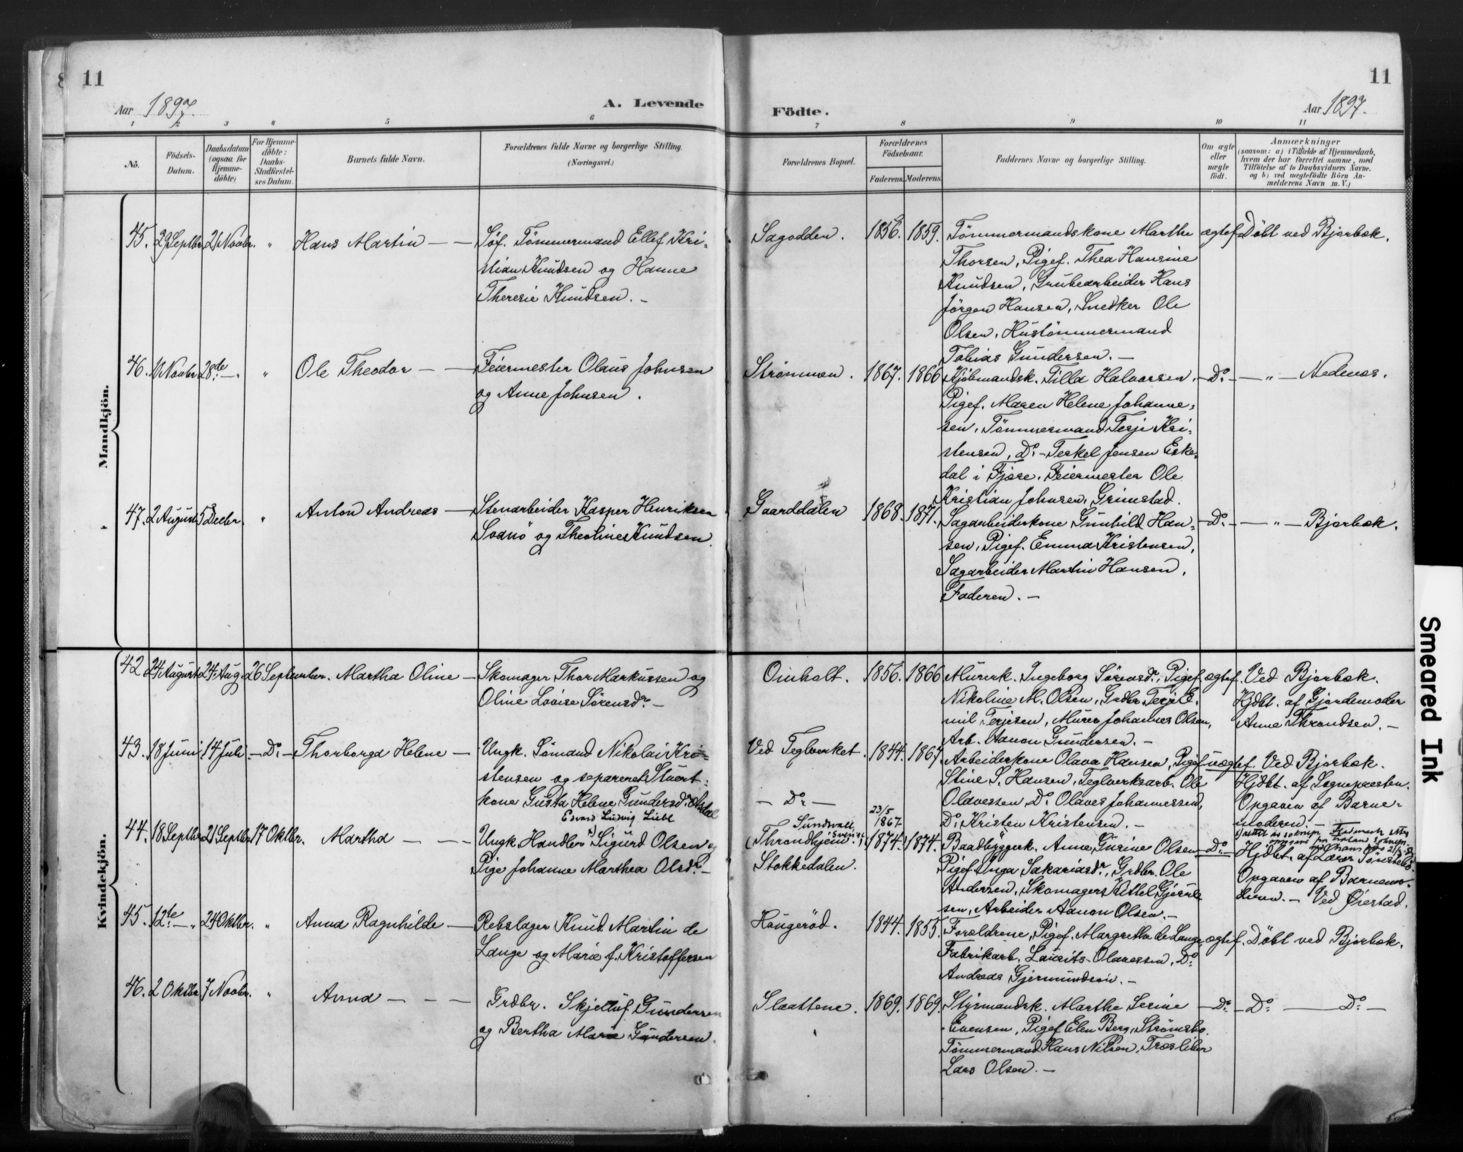 11
11
Aar 1897.
A. Levende
Födte.
Aar 1897.
1 2 3 4 5 6 7 8 9 10 11
No.
Födsels-
Datum.
Daabsdatum
(ogsaa for
Hjemme-
døbte)
For Hjemme-
døbte:
Daabs-
Stadfæstel-
ses Datum.
Barnets fulde Navn.
Forældrenes fulde Navne og borgerlige Stilling.
(Næringsvei.)
Forældrenes Bopæl.
Forældrenes
Födselsaar.
Faderens.
Moderens.
Faddernes Navne og borgerlige Stilling.
Om ægte
eller
uægte
født.
Anmærkninger
(saasom: a) i Tilfælde af Hjemmedaab,
hvem der har forrettet samme, med
Tilføielse af to Daabsvidners Navne,
og b) ved uægtefødte Börn An-
melderens Navn m. V.)
Mandkjön.
45. 29 Septbr. 21 Novbr. " Hans Martin — —
Søf. Tømmermand Ellef Kri-
stian Knudsen og Hanne
Theresie Knudsen. —
Sagodden. 1856. 1859.
Tømmermandskone Marthe
Thorsen, Pigef. Thea Hansine
Knudsen, Grubearbeider Hans
Jørgen Hansen, Snedker Ole
Olsen, Hustømmermand
Tobias Gundersen. —
ægtef. Døbt ved Bjorbæk.
46. Novbr. 28de — " Ole Theodor — —
Feiermester Olaus Johnsen
og Anne Johnsen.
Strømmen. 1867. 1866
Kjøbmandsk. Tilla Halvorsen,
Pigef. Maren Helene Johanne-
sen, Tømmermand Terje Kri-
stensen, Do — Terkel Jensen Eske-
dal i Fjære, Feiermester Ole
Kristian Johnsen, Grimstad.
— Do — — " — Nedenes.
47. 2 August 5 Decbr. " Anton Andreas —
Stenarbeider Kasper Henriksen
og Theoline Knudsen.
Gaarddalen 1868. 1871.
Sagarbeiderkone Gunhild Han-
sen, Pigef. Emma Kristensen,
Sagarbeider Martin Hansen,
Faderen. —
— Do — — " — Bjorbæk.
Kvindekjön.
42 24 August 24 Aug. 26 September. Martha Oline —
Skomager Thor Markussen og
Oline Lovise Sørensdr. —
1856. 1866
Murerk. Ingeborg Sørensdr., Pigef.
Nikoline M. Olsen, Grdbr. Terje E-
mil Terjesen, Murer Johannes Olsen,
Arb. Hanon Gundersen. —
ægtef. Ved Bjorbæk.
Hjdbt. af Gjordemoder
Anne Throndsen. —
43. 18 Juni 14 Juli — Do — Thorborga Helene —
Ungk. Sømand Nikolai Kri-
stensen og separeret
kone Gusta Helene Gundersdr.
Ved Teglverket. 1844. 1867
— Do —
Arbeiderkone Olava Hansen, Pigef.
Stine S. Hansen, Teglverksarb. Ole
Olavesen, Do Olaves Johannessen,
Do Kristen Kristensen. —
uægtef. Ved Bjorbæk.
Hjdbt. af Sognepræsten.
Opgaven af Barne-
moderen. —
44. 18 Septbr. 21 Septbr. 17 Oktbr. Martha — — —
Edvard Ludvig
Ungk. Handlbr. Sigurd Olsen og
Pige Johanne Marthea Olsdr. —
Sundsvall
(Throndhjem)
Stokkedalen.
23/5 1867
1874. 1874.
Baadbyggerk. Anne Gurine Olsen,
Pigef. Inga Sakariasdr., Grdbr. Ole
Andersen, Skomager Aksel Gjerul-
sen, Arbeider Aanon Olsen. —
— Do —
Hjdbt. af Lærer
Opgaven af Barnemo-
deren. — Ved Øiestad.
45. 12te — " 24 Oktbr. " Anna Ragnhilde —
Rebslager Knud Martin de
Lange og Marie f. Kristoffersen
Haugerød. 1844. 1855.
Forældrene, Pigef. Margrethe de Lange,
Fabrikarb. Laurits Olavessen, Do
Andreas Gjermundsen. —
ægtef. Døbt ved Bjorbæk.
46. 2 Oktbr. 7 Novbr. " Anna — — —
Grdbr. Skjelluf Gundersen
og Bertha Marie Gundersen.
Slaattene. 1869. 1869.
Styrmandsk. Marthe Serine
Evensen, Pigef. Elen Berg, Strømsbo.
Tømmermand Hans Nilsen,
Lars Olsen. —
— Do — Do — Do —
Smeared Ink